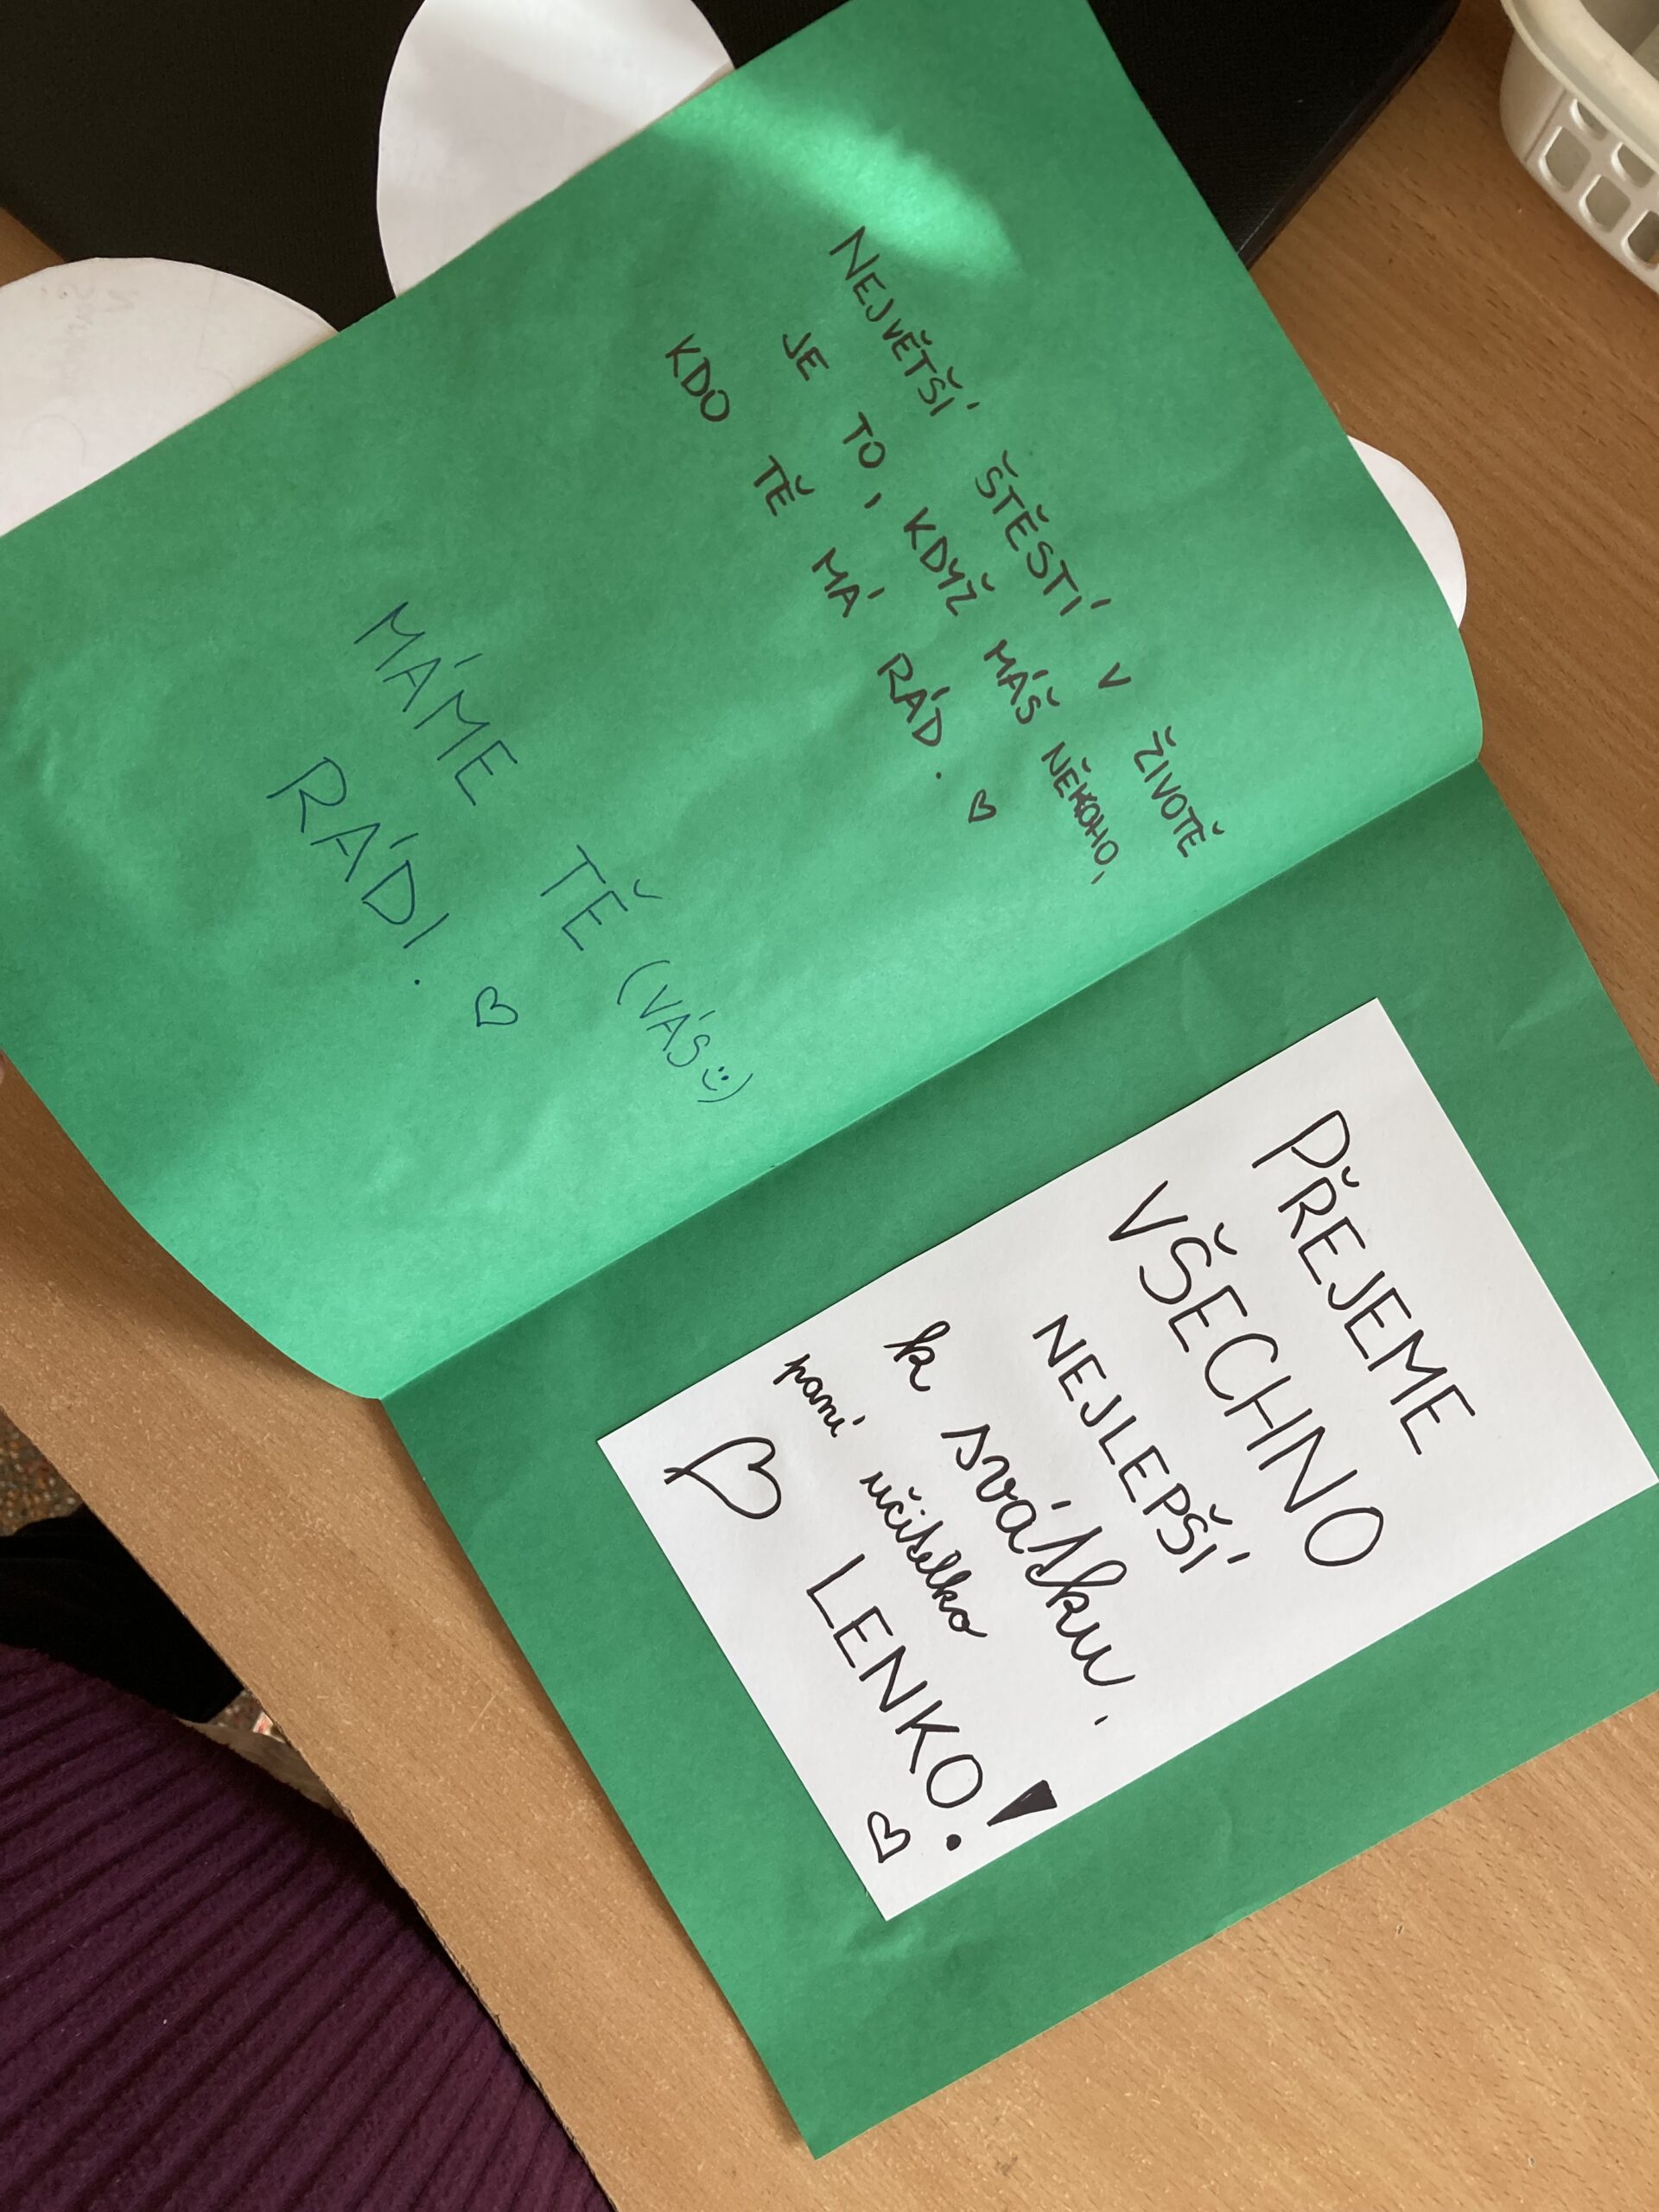 NEJVĚTŠÍ ŠTĚSTÍ V ŽIVOTĚ
JE TO, KDYŽ MÁŠ NĚKOHO,
KDO TĚ MÁ RÁD. ♡
MÁME TĚ (VÁS :))
RÁDI. ♡
PŘEJEME
VŠECHNO
NEJLEPŠÍ
k svátku,
paní učitelko
♡ LENKO! ♡